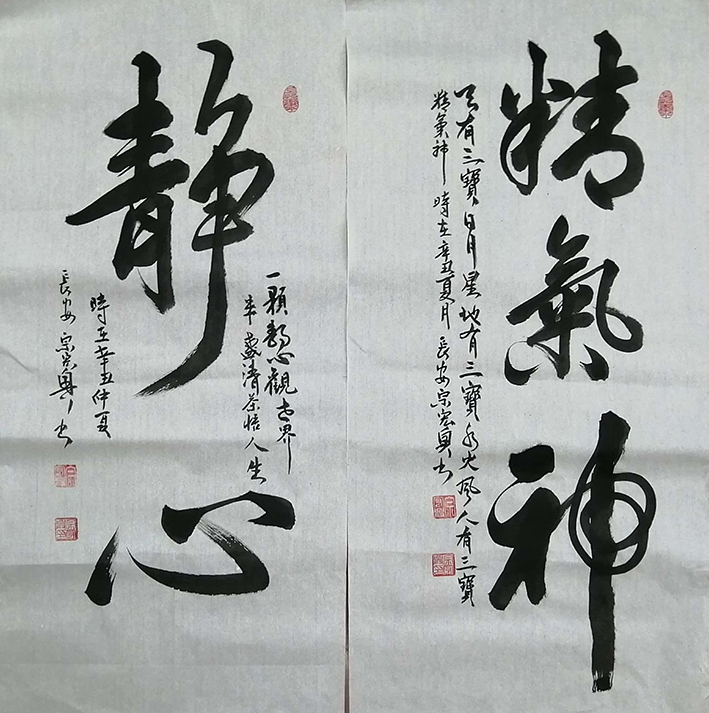 精氣神
天有三寶日月星地有三寶水火風人有三寶
精氣神 時在辛丑夏月 長安宗宏興書
静心
一顆静心觀世界
半盞清茶悟人生
時在辛丑仲夏
長安宗宏興書